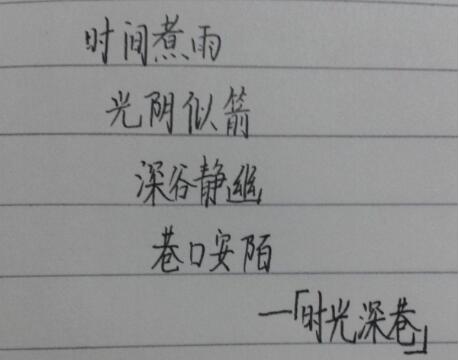 时间煮雨
光阴似箭
深谷静幽
巷口安陌
—「时光深巷」